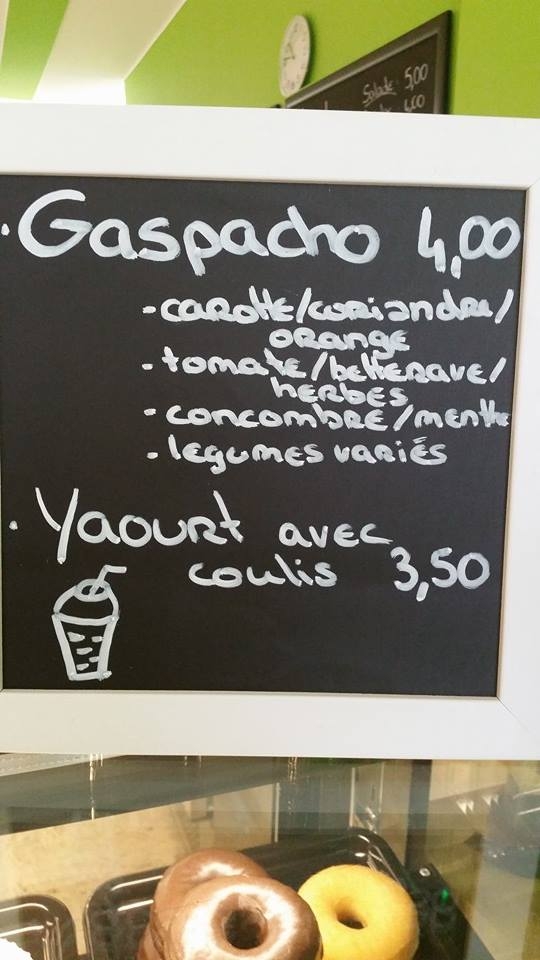 Salade 5,00
4,00
· Gaspacho 4,00
- carotte/coriandre/
orange
- tomate/betterave/
herbes
- concombre/menthe
- legumes variés
· Yaourt avec
coulis 3,50